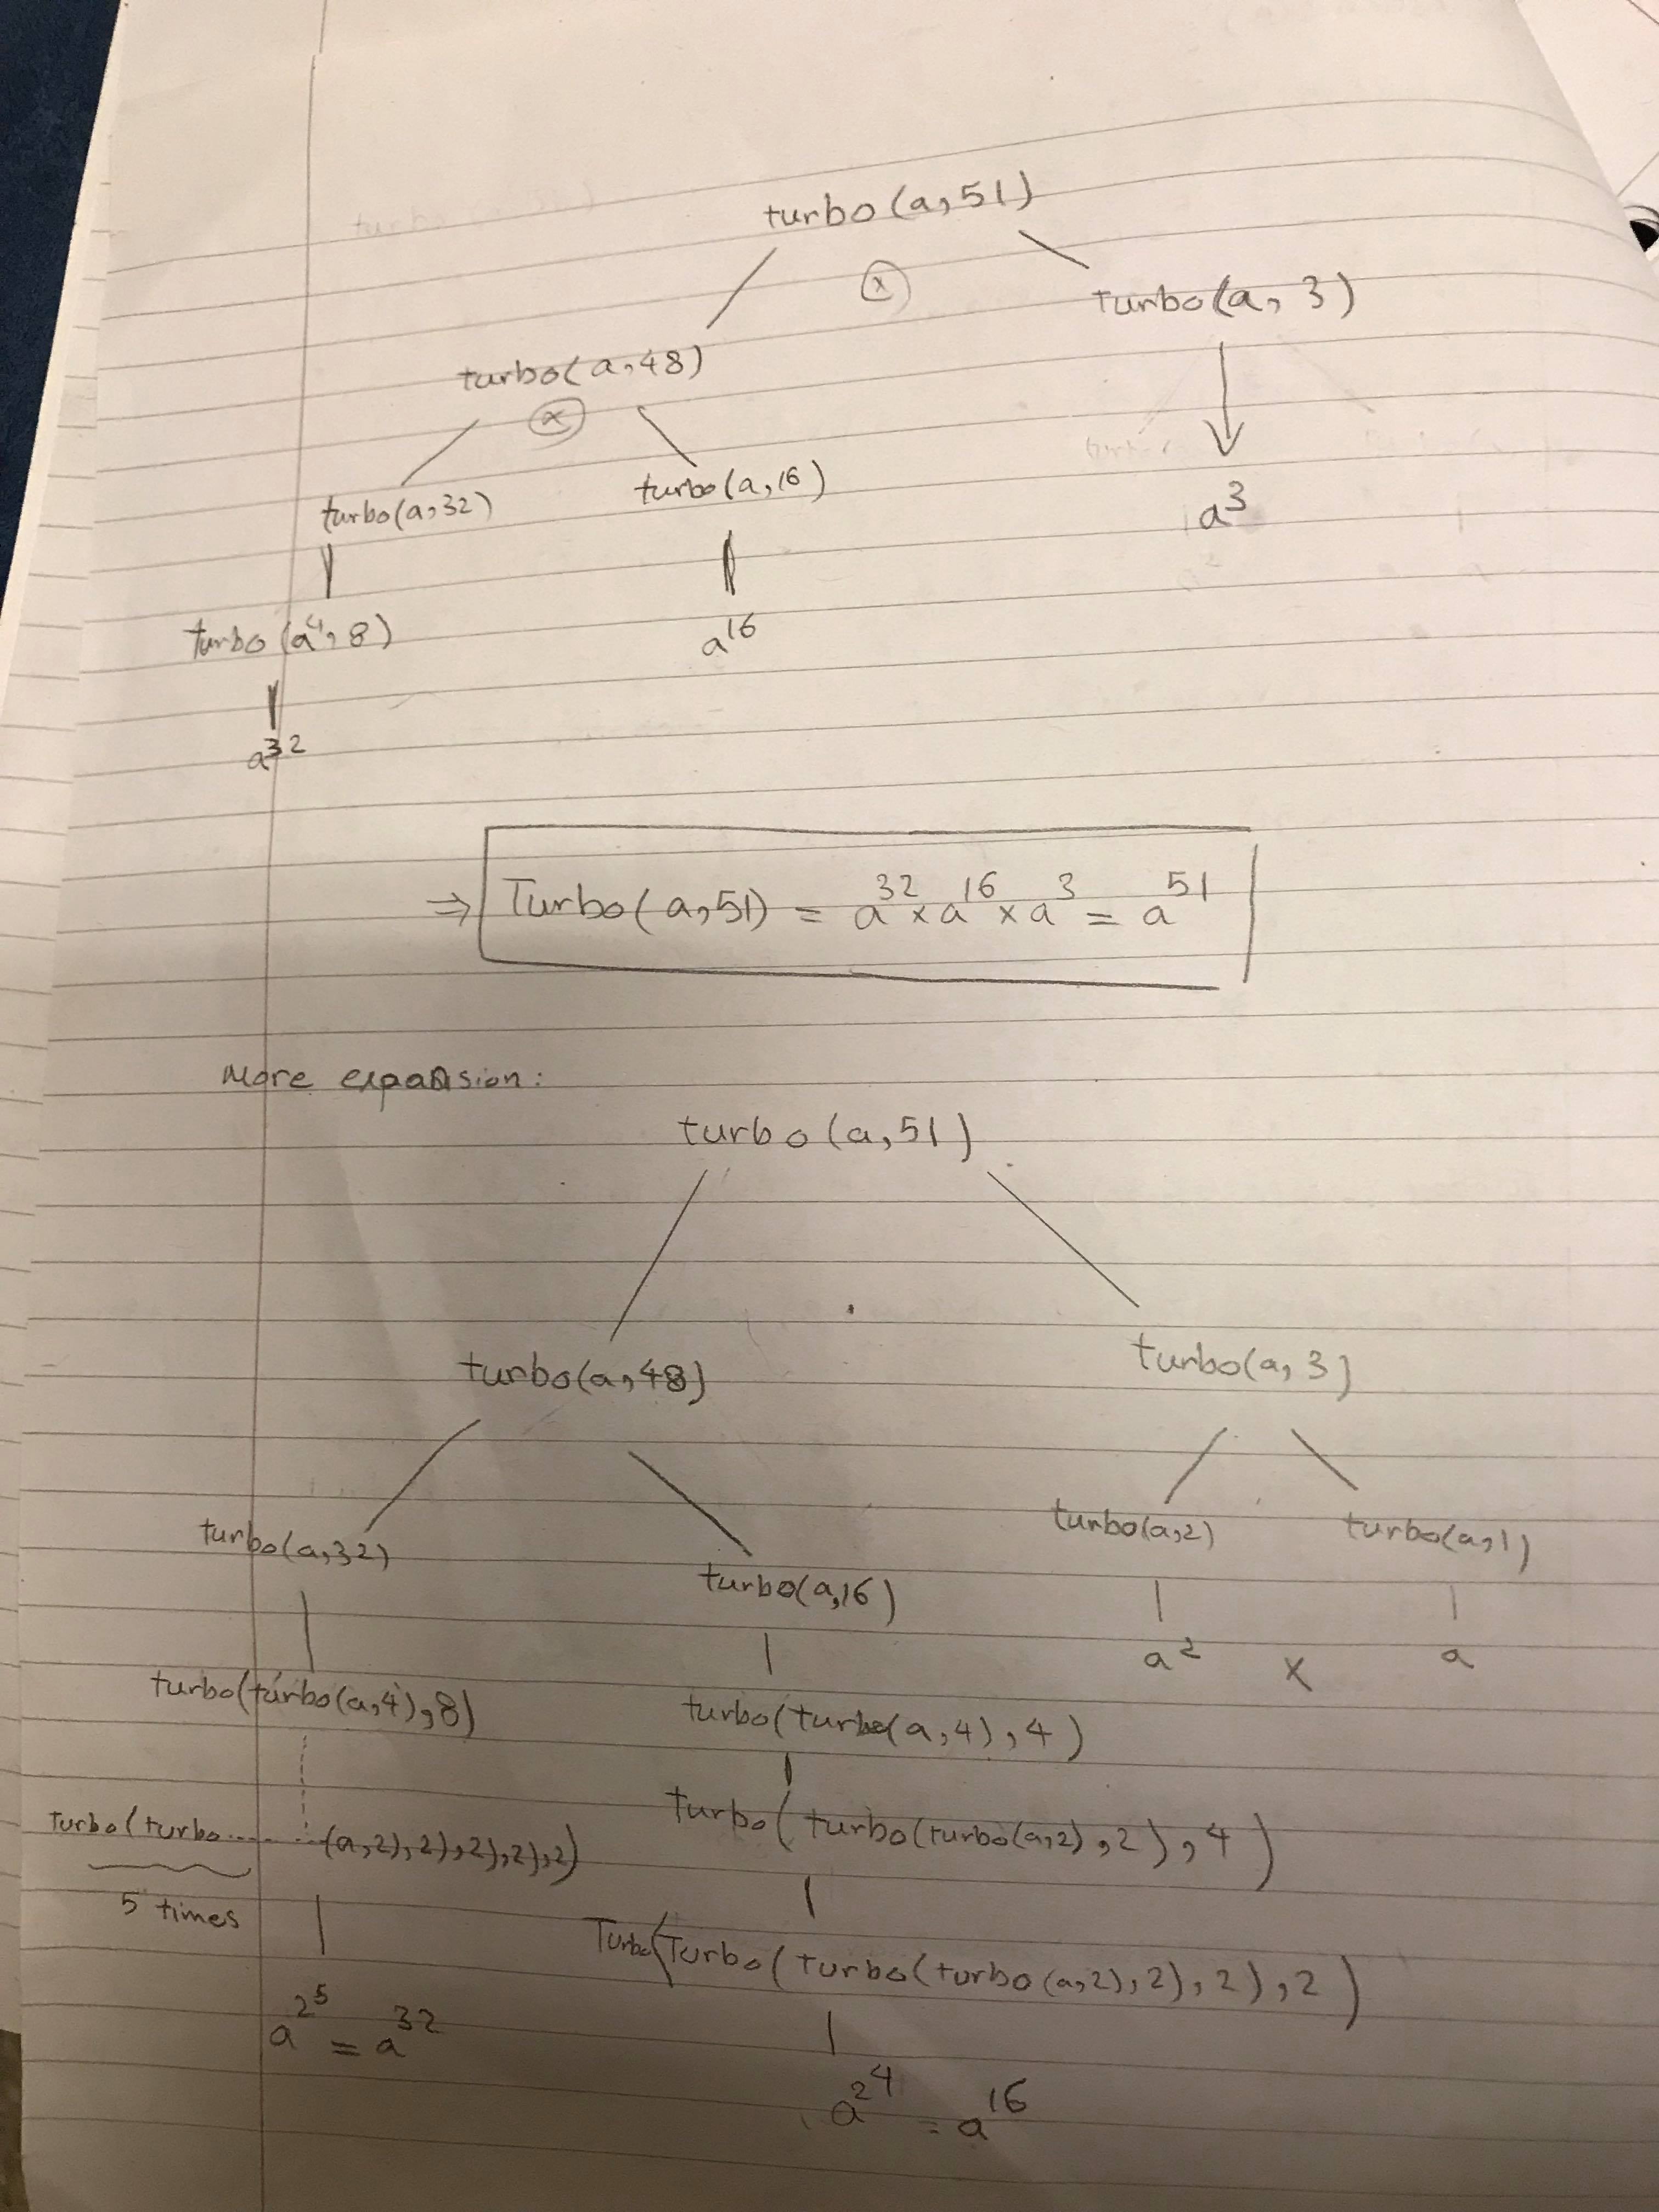 turbo(a,51)
x
turbo(a, 3)
turbo(a,48)
x
turbo(a,32)
turbo(a,16)
a³
turbo(a⁴,8)
a¹⁶
a³²
⇒ Turbo(a,51) = a³² x a¹⁶ x a³ = a⁵¹
More expansion:
turbo(a,51)
turbo(a,48)
turbo(a,3)
turbo(a,32)
turbo(a,16)
turbo(a,2)
turbo(a,1)
a² x a
turbo(turbo(a,4),8)
turbo(turbo(a,4),4)
turbo(turbo(turbo(a,2),2),4)
Turbo(turbo.........(a,2),2),2),2),2)
5 times
Turbo(Turbo(turbo(turbo(a,2),2),2),2)
a^2^5 = a³²
a^2^4 = a¹⁶